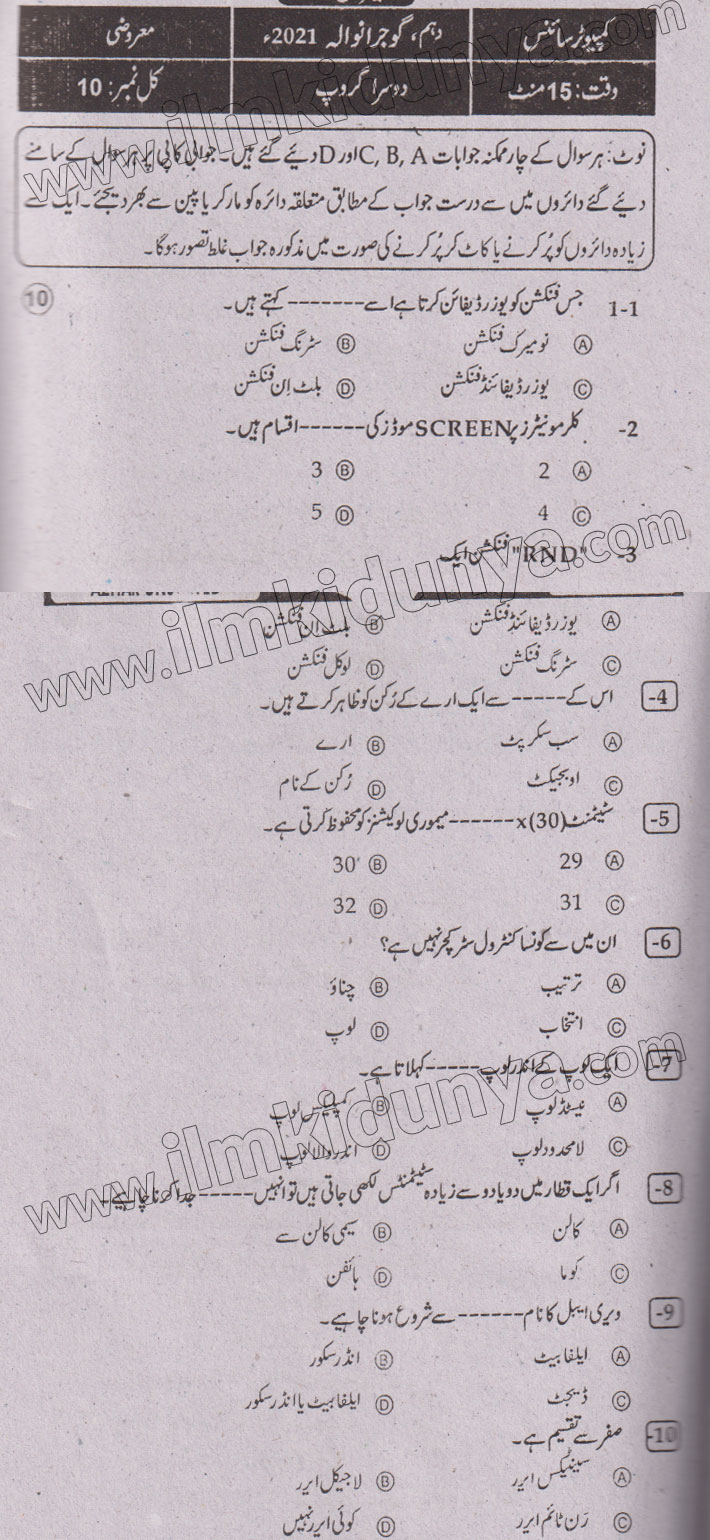 کمپیوٹر سائنس دہم، گوجرانوالہ 2021ء معروضی
وقت: 15 منٹ دوسرا گروپ کل نمبر: 10
نوٹ: ہر سوال کے چار ممکنہ جوابات C, B, A اور D دیئے گئے ہیں۔ جوابی کاپی پر ہر سوال کے سامنے
دیئے گئے دائروں میں سے درست جواب کے مطابق متعلقہ دائرہ کو مارکر یا پین سے بھر دیجئے۔ ایک سے
زیادہ دائروں کو پُر کرنے یا کاٹ کر پُر کرنے کی صورت میں مذکورہ جواب غلط تصور ہوگا۔
1-1 جس فنکشن کو یوزر ڈیفائن کرتا ہے اسے ------- کہتے ہیں۔ 10
A نومیرک فنکشن B سٹرنگ فنکشن
C یوزر ڈیفائنڈ فنکشن D بلٹ اِن فنکشن
2- کلر مونیٹرز پر SCREEN موڈز کی ------ اقسام ہیں۔
A 2 B 3
C 4 D 5
3- "RND" فنکشن ایک
A یوزر ڈیفائنڈ فنکشن B بلٹ اِن فنکشن
C سٹرنگ فنکشن D لوکل فنکشن
4- اس کے ----- سے ایک ارے کے رُکن کو ظاہر کرتے ہیں۔
A سب سکرپٹ B ارے
C اوبجیکٹ D رُکن کے نام
5- سٹیٹمنٹ x(30) ------ میموری لوکیشنز کو محفوظ کرتی ہے۔
A 29 B 30
C 31 D 32
6- ان میں سے کونسا کنٹرول سٹرکچر نہیں ہے؟
A ترتیب B چناؤ
C انتخاب D لوپ
7- ایک لوپ کے اندر لوپ ----- کہلاتا ہے۔
A نیسٹڈ لوپ B کمپلیکس لوپ
C لامحدود لوپ D اندر والا لوپ
8- اگر ایک قطار میں دو یا دو سے زیادہ سٹیٹمنٹس لکھی جاتی ہیں تو انہیں ----- جدا کرنا چاہیے۔
A کالن B سیمی کالن سے
C کوما D ہائفن
9- ویری ایبل کا نام ------ سے شروع ہونا چاہیے۔
A ایلفابیٹ B انڈر سکور
C ڈیجٹ D ایلفابیٹ یا انڈر سکور
10- صفر سے تقسیم ہے۔
A سینٹیکس ایرر B لاجیکل ایرر
C رَن ٹائم ایرر D کوئی ایرر نہیں
www.ilmkidunya.com
www.ilmkidunya.com
www.ilmkidunya.com